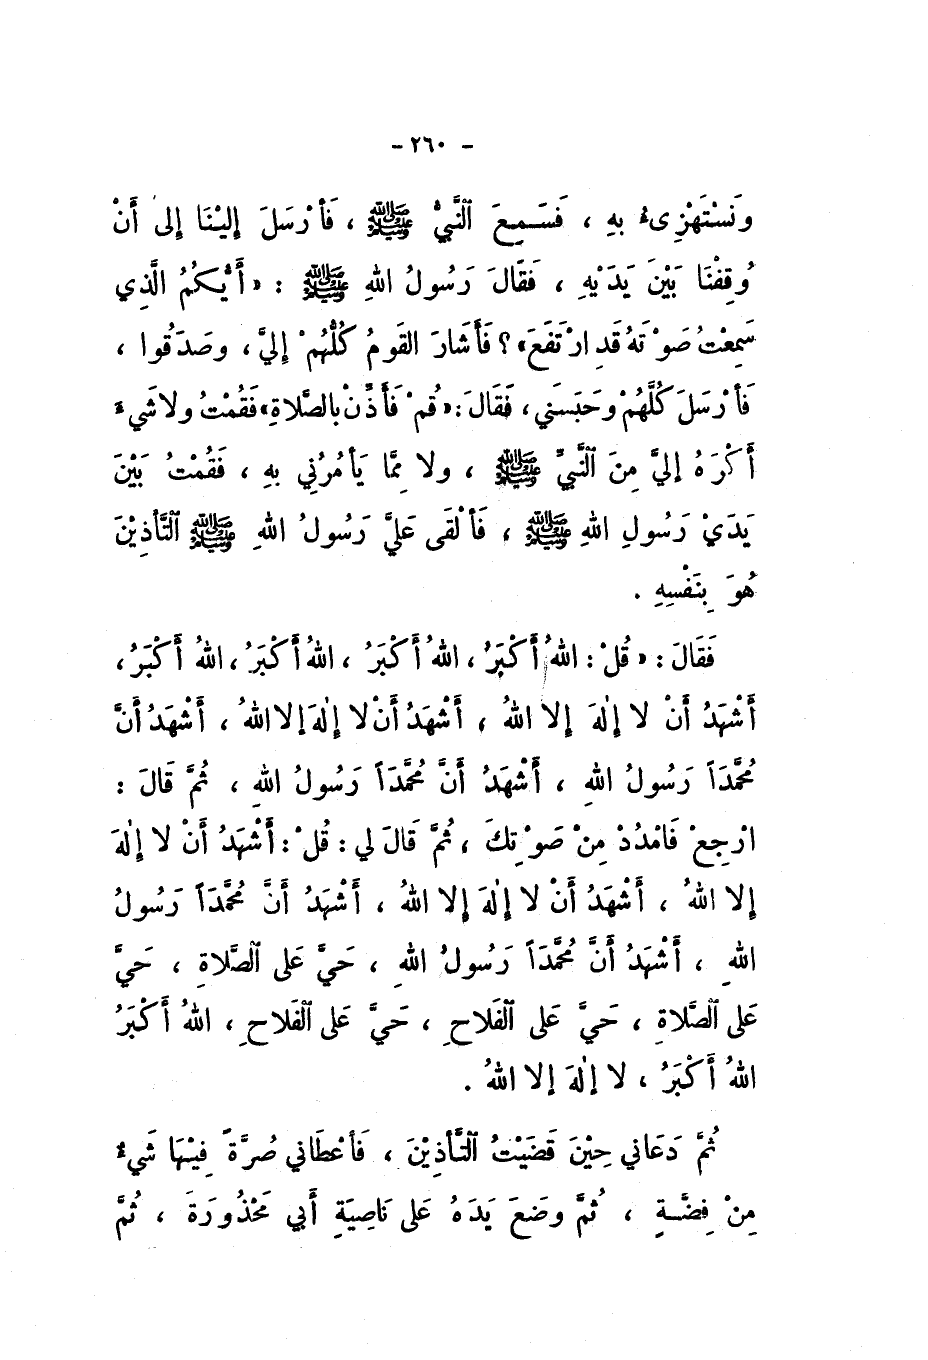 - ٢٦٠ -
وَنَسْتَهْزِىءُ بِهِ ، فَسَمِعَ ٱلنَّبِيُّ ﷺ ، فَأَرْسَلَ إِلَيْنَا إِلى أَنْ
وُقِفْنَا بَيْنَ يَدَيْهِ ، فَقَالَ رَسُولُ اللهِ ﷺ : « أَيُّكُمُ الَّذِي
سَمِعْتُ صَوْتَهُ قَدِ ارْتَفَعَ» ؟ فَأَشَارَ القَومُ كُلُّهُمْ إِليَّ ، وصَدَقُوا ،
فَأَرْسَلَ كُلَّهُمْ وَحَبَسَنِي ، فَقَالَ : « قُمْ فَأَذِّنْ بِالصَّلاةِ» فَقُمْتُ ولا شَيءَ
أَكْرَهُ إِليَّ مِنَ ٱلنَّبِيِّ ﷺ ، ولا مِمَّا يَأْمُرُنِي بِهِ ، فَقُمْتُ بَيْنَ
يَدَيْ رَسُولِ اللهِ ﷺ ، فَأَلْقَى عَلَيَّ رَسُولُ اللهِ ﷺ ٱلتَّأْذِيْنَ
هُوَ بِنَفْسِهِ .
فَقَالَ : « قُلْ : اللهُ أَكْبَرُ ، اللهُ أَكْبَرُ ، اللهُ أَكْبَرُ ، اللهُ أَكْبَرُ ،
أَشْهَدُ أَنْ لا إِلٰهَ إِلا اللهُ ، أَشْهَدُ أَنْ لا إِلٰهَ إِلا اللهُ ، أَشْهَدُ أَنَّ
مُحَمَّدَاً رَسُولُ اللهِ ، أَشْهَدُ أَنَّ مُحَمَّدَاً رَسُولُ اللهِ ، ثُمَّ قَالَ :
ارْجِعْ فَامْدُدْ مِنْ صَوْتِكَ ، ثُمَّ قَالَ لي : قُلْ : أَشْهَدُ أَنْ لا إِلٰهَ
إِلا اللهُ ، أَشْهَدُ أَنْ لا إِلٰهَ إِلا اللهُ ، أَشْهَدُ أَنَّ مُحَمَّدَاً رَسُولُ
اللهِ ، أَشْهَدُ أَنَّ مُحَمَّدَاً رَسُولُ اللهِ ، حَيَّ عَلى ٱلصَّلاةِ ، حَيَّ
عَلى ٱلصَّلاةِ ، حَيَّ عَلى ٱلفَلاحِ ، حَيَّ عَلى ٱلفَلاحِ ، اللهُ أَكْبَرُ
اللهُ أَكْبَرُ ، لا إِلٰهَ إِلا اللهُ .
ثُمَّ دَعَاني حِيْنَ قَضَيْتُ ٱلتَّأْذِيْنَ ، فَأَعْطَاني صُرَّةً فِيْهَا شَيءٌ
مِنْ فِضَّةٍ ، ثُمَّ وضَعَ يَدَهُ عَلى نَاصِيَةِ أَبي مَحْذُورَةَ ، ثُمَّ